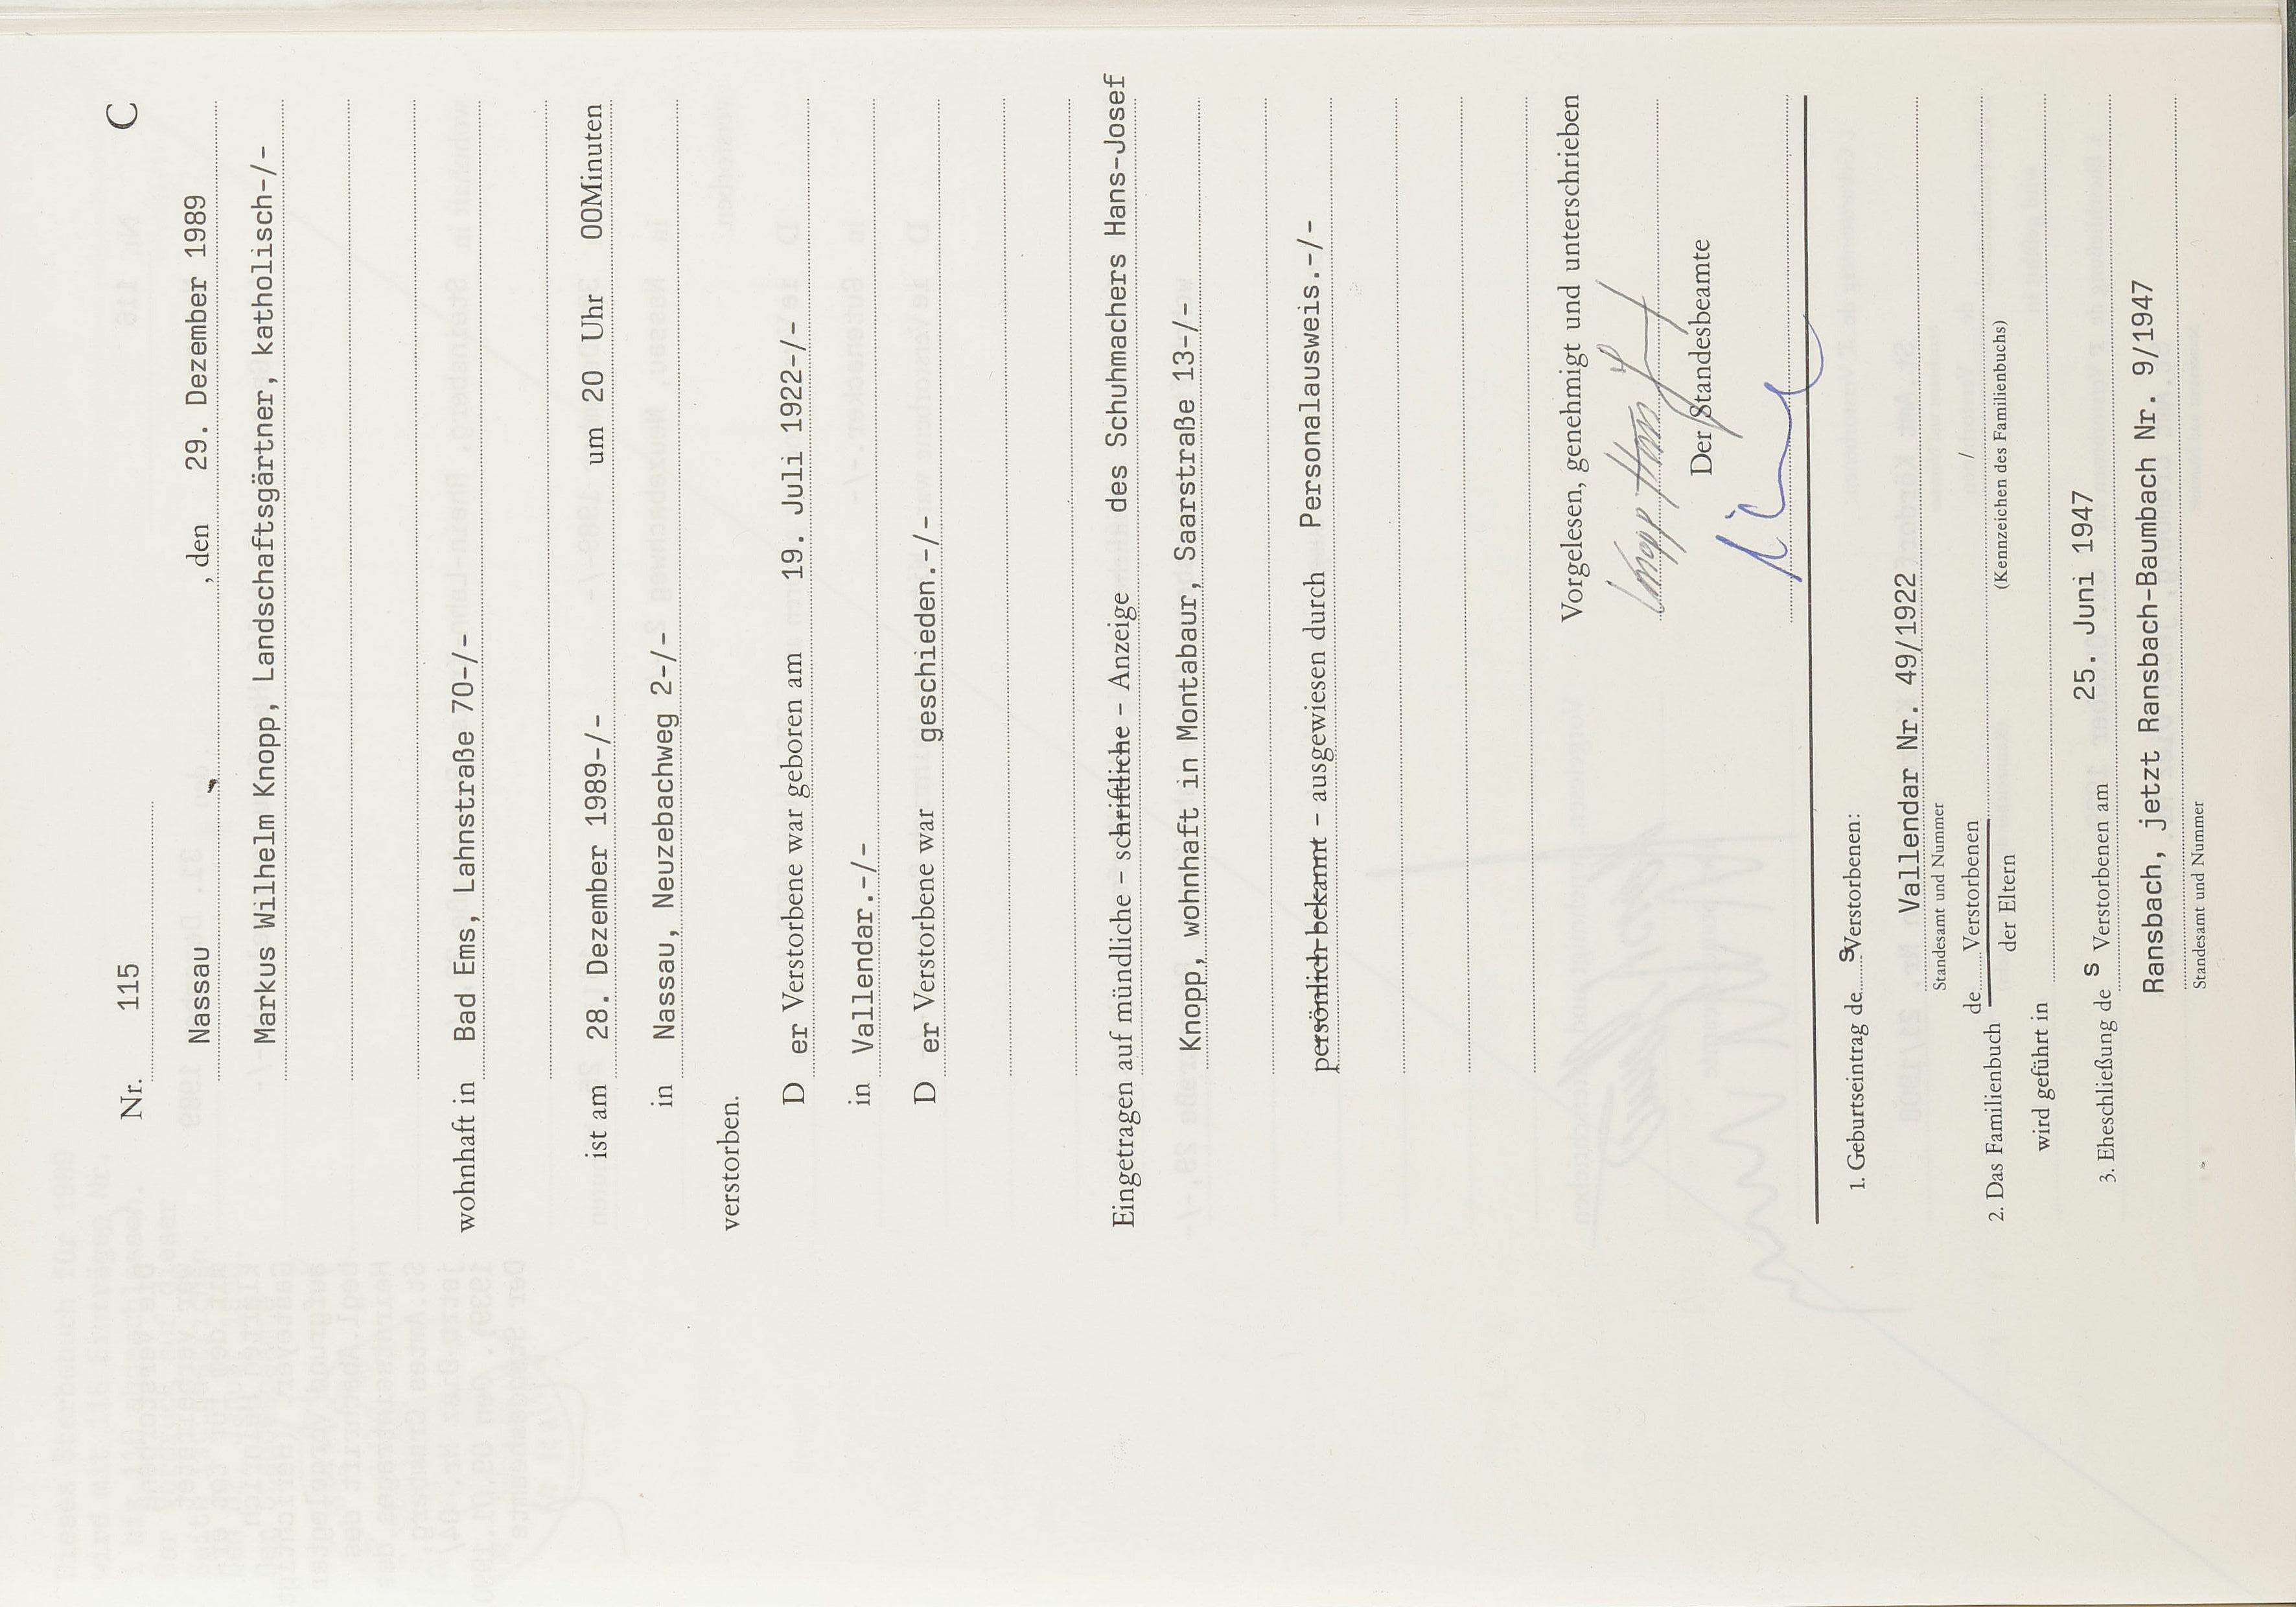 Nr. 115 C
Nassau , den 29. Dezember 1989
Markus Wilhelm Knopp, Landschaftsgärtner, katholisch-/-
wohnhaft in Bad Ems, Lahnstraße 70-/-
ist am 28. Dezember 1989-/- um 20 Uhr 00Minuten
in Nassau, Neuzebachweg 2-/-
verstorben.
D er Verstorbene war geboren am 19. Juli 1922-/-
in Vallendar.-/-
D er Verstorbene war geschieden.-/-
Eingetragen auf mündliche – schriftliche – Anzeige des Schuhmachers Hans-Josef
Knopp, wohnhaft in Montabaur, Saarstraße 13-/-
persönlich bekannt – ausgewiesen durch Personalausweis.-/-
Vorgelesen, genehmigt und unterschrieben
Knopp Hans
Der Standesbeamte
1. Geburtseintrag des Verstorbenen:
Vallendar Nr. 49/1922
Standesamt und Nummer
2. Das Familienbuch de Verstorbenen /
der Eltern (Kennzeichen des Familienbuchs)
wird geführt in
3. Eheschließung des Verstorbenen am 25. Juni 1947
Ransbach, jetzt Ransbach-Baumbach Nr. 9/1947
Standesamt und Nummer